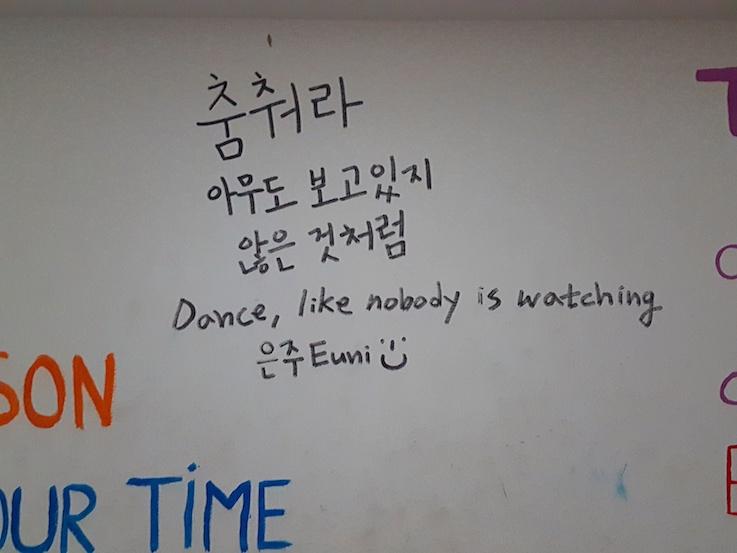 춤춰라
아무도 보고있지
않은 것처럼
Dance, like nobody is watching
은주 Euni
SON
OUR TIME